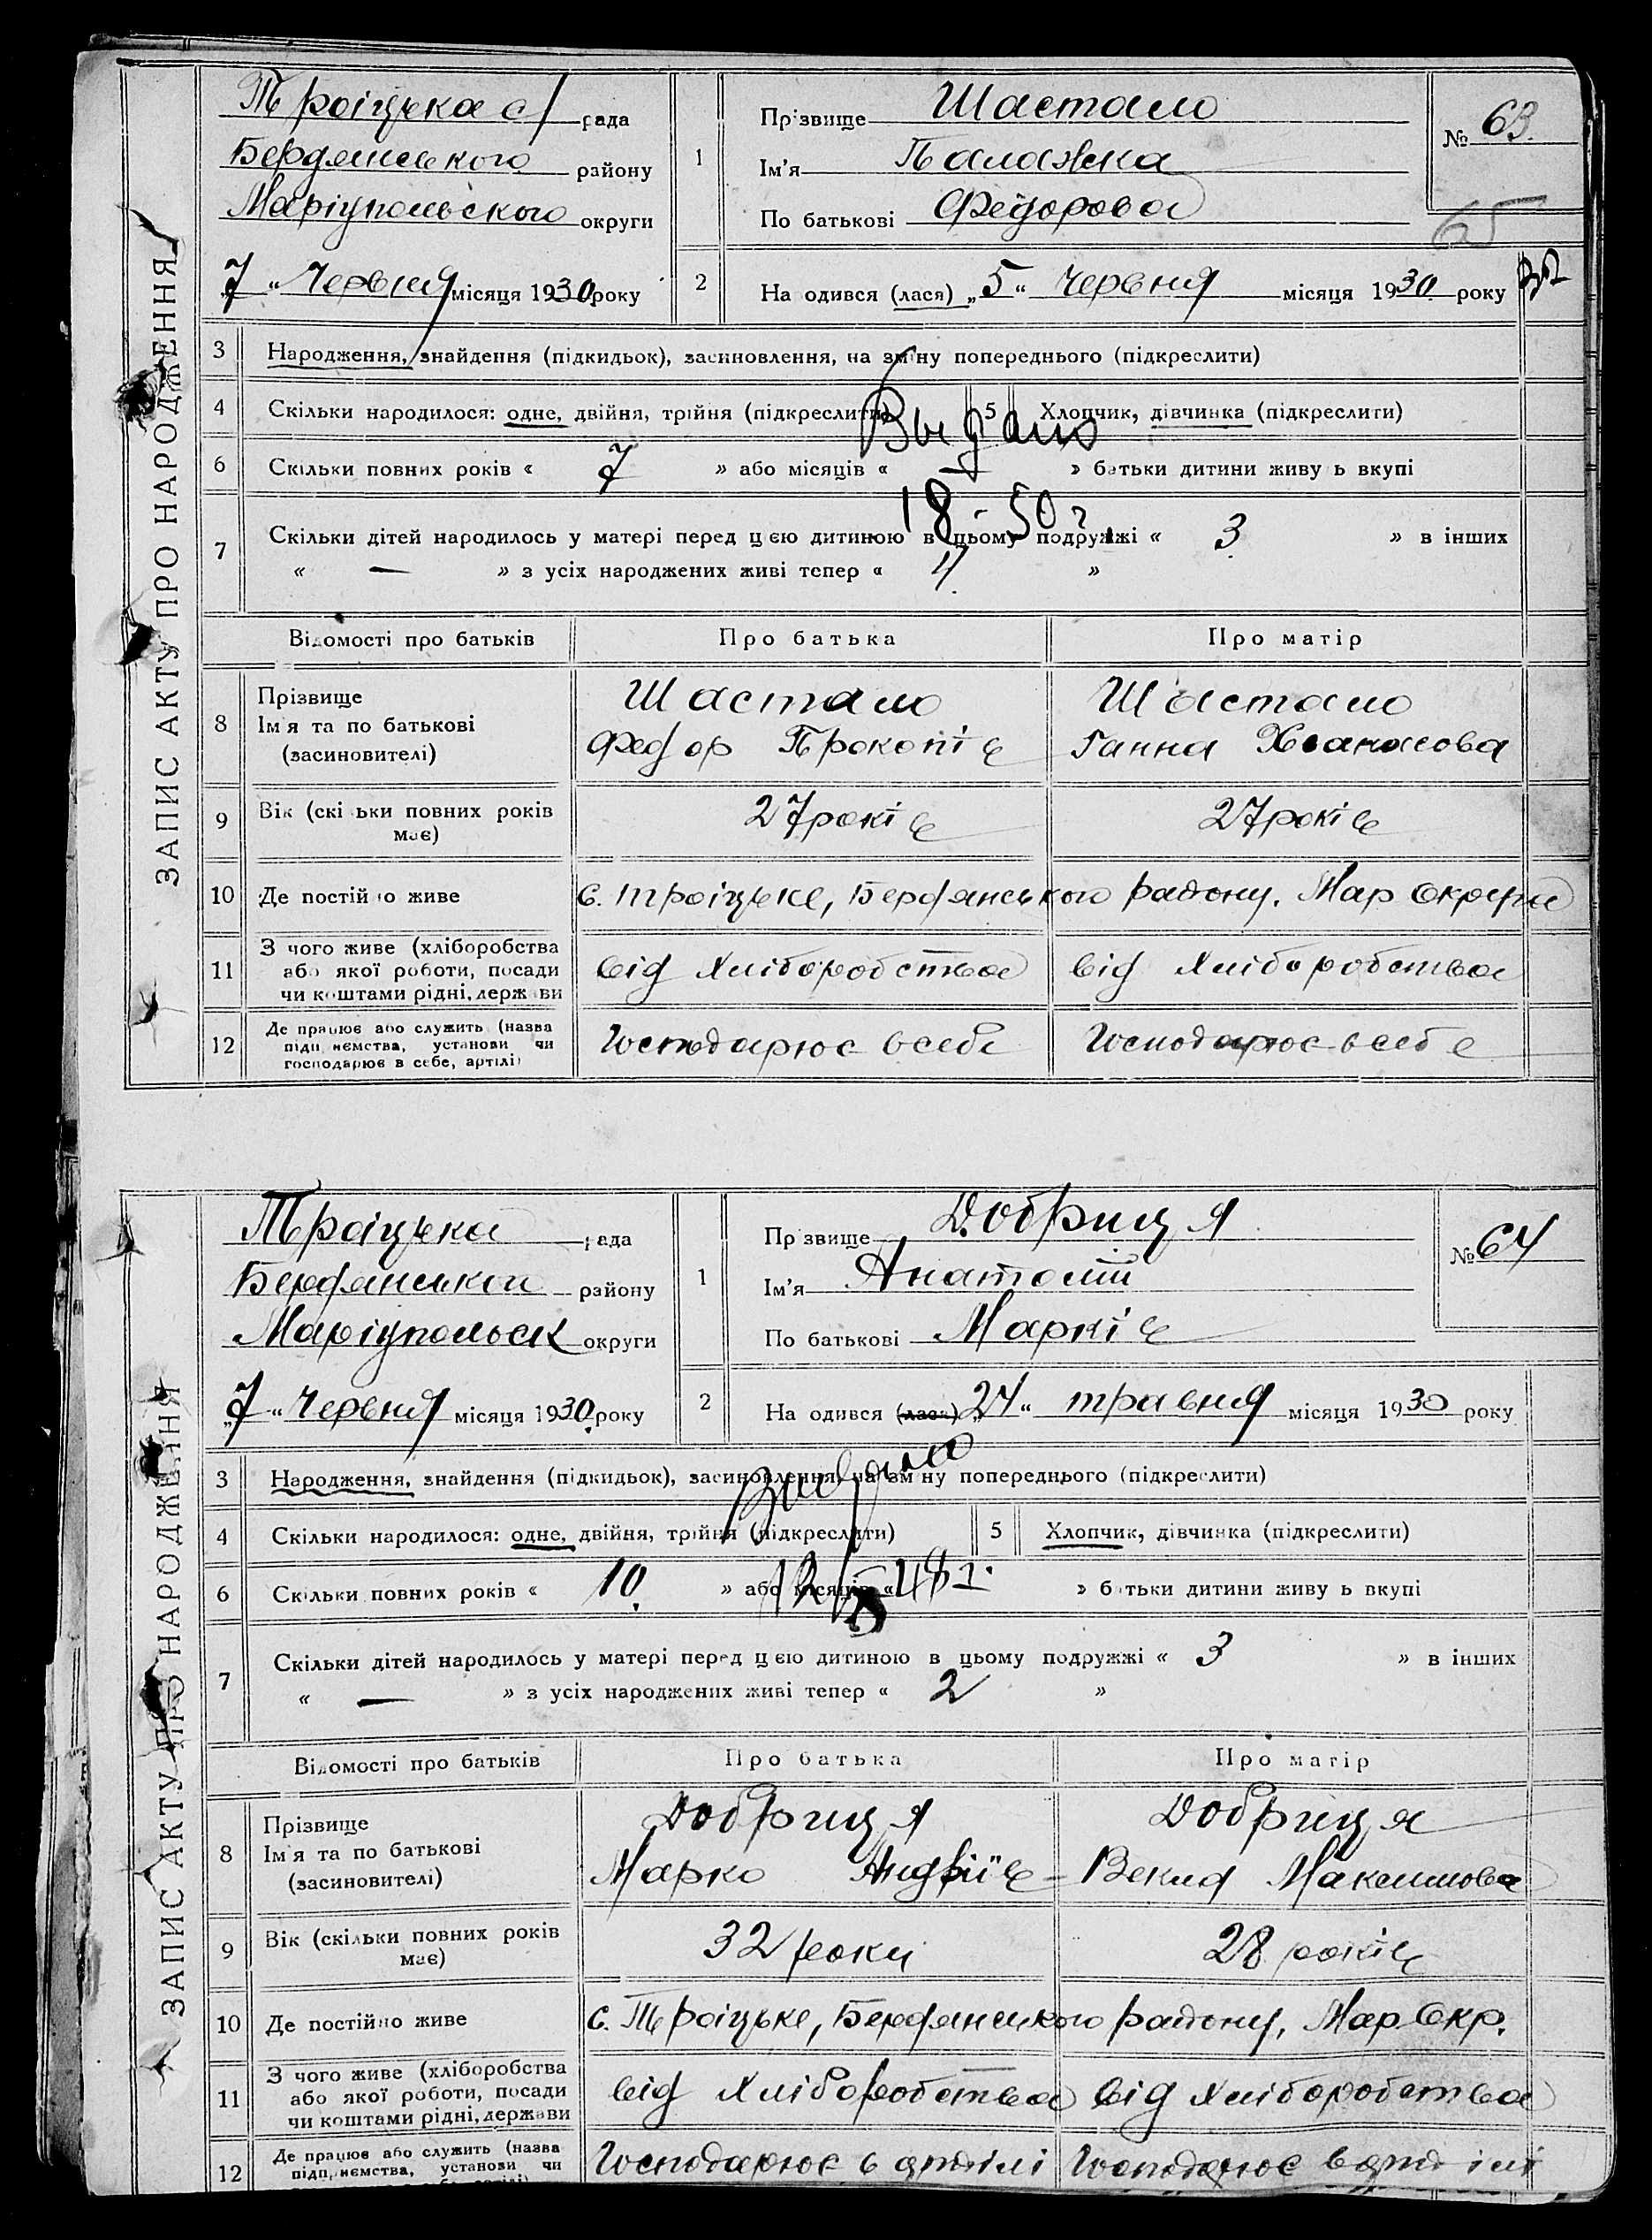 ЗАПИС АКТУ ПРО НАРОДЖЕННЯ
Троіцька с/ рада
Бердянського району
Маріупольського округи
„7“ Червня місяця 1930 року
1
Прізвище Шастало
Ім'я Палажка
По батькові Федорова
№ 63.
65
2
На одився (лася) „5“ Червня місяця 1930 року
3 Народження, знайдення (підкидьок), засиновлення, на зміну попереднього (підкреслити)
4 Скільки народилося: одне, двійня, трійня (підкреслити) 5 Хлопчик, дівчинка (підкреслити)
Выдано
6 Скільки повних років « 7 » або місяців « — » батьки дитини живу ь вкупі
18 - 50 г.
7 Скільки дітей народилось у матері перед цією дитиною в цьому подружжі « 3 » в інших
« — » з усіх народжених живі тепер « 4. »
Відомості про батьків Про батька Про матір
8 Прізвище Ім'я та по батькові (засиновителі)
Шастало Шастало
Федор Прокопів Ганна
9 Вік (скі ьки повних років має) 27 років 27 років
10 Де постійно живе с. Троіцьке, Бердянського району, Мар Округи
11 З чого живе (хліборобства або якої роботи, посади чи коштами рідні, держави
від Хліборобства від Хліборобства
12 Де працює або служить (назва підп иємства, установи чи господарює в себе, артілі)
Господарює в себе Господарює в себе
ЗАПИС АКТУ ПРО НАРОДЖЕННЯ
Троіцька рада
Бердянського району
Маріупольськ округи
„7“ Червня місяця 1930 року
1
Пр звище Добриця
Ім'я Анатолій
По батькові Марків
№ 64
2
На одився (лася) „24“ травня місяця 1930 року
3 Народження, знайдення (підкидьок), засиновлення, на зм ну попереднього (підкреслити)
4 Скільки народилося: одне, двійня, трійня (підкреслити) 5 Хлопчик, дівчинка (підкреслити)
6 Скільки повних років « 10. » або місяців « » батьки дитини живу ь вкупі
48 г.
7 Скільки дітей народилось у матері перед цією дитиною в цьому подружжі « 3 » в інших
« — » з усіх народжених живі тепер « 2 »
Відомості про батьків Про батька Про матір
8 Прізвище Ім'я та по батькові (засиновителі)
Добриця Добриця
Марко Андріїв Векла Максимова
9 Вік (скільки повних років має) 32 роки 28 років
10 Де постійно живе с. Троіцьке, Бердянського району, Мар Окр.
11 З чого живе (хліборобства або якої роботи, посади чи коштами рідні, держави
від Хліборобства від Хліборобства
12 Де працює або служить (назва підприємства, установи чи
Господарює в артілі Господарює в артілі